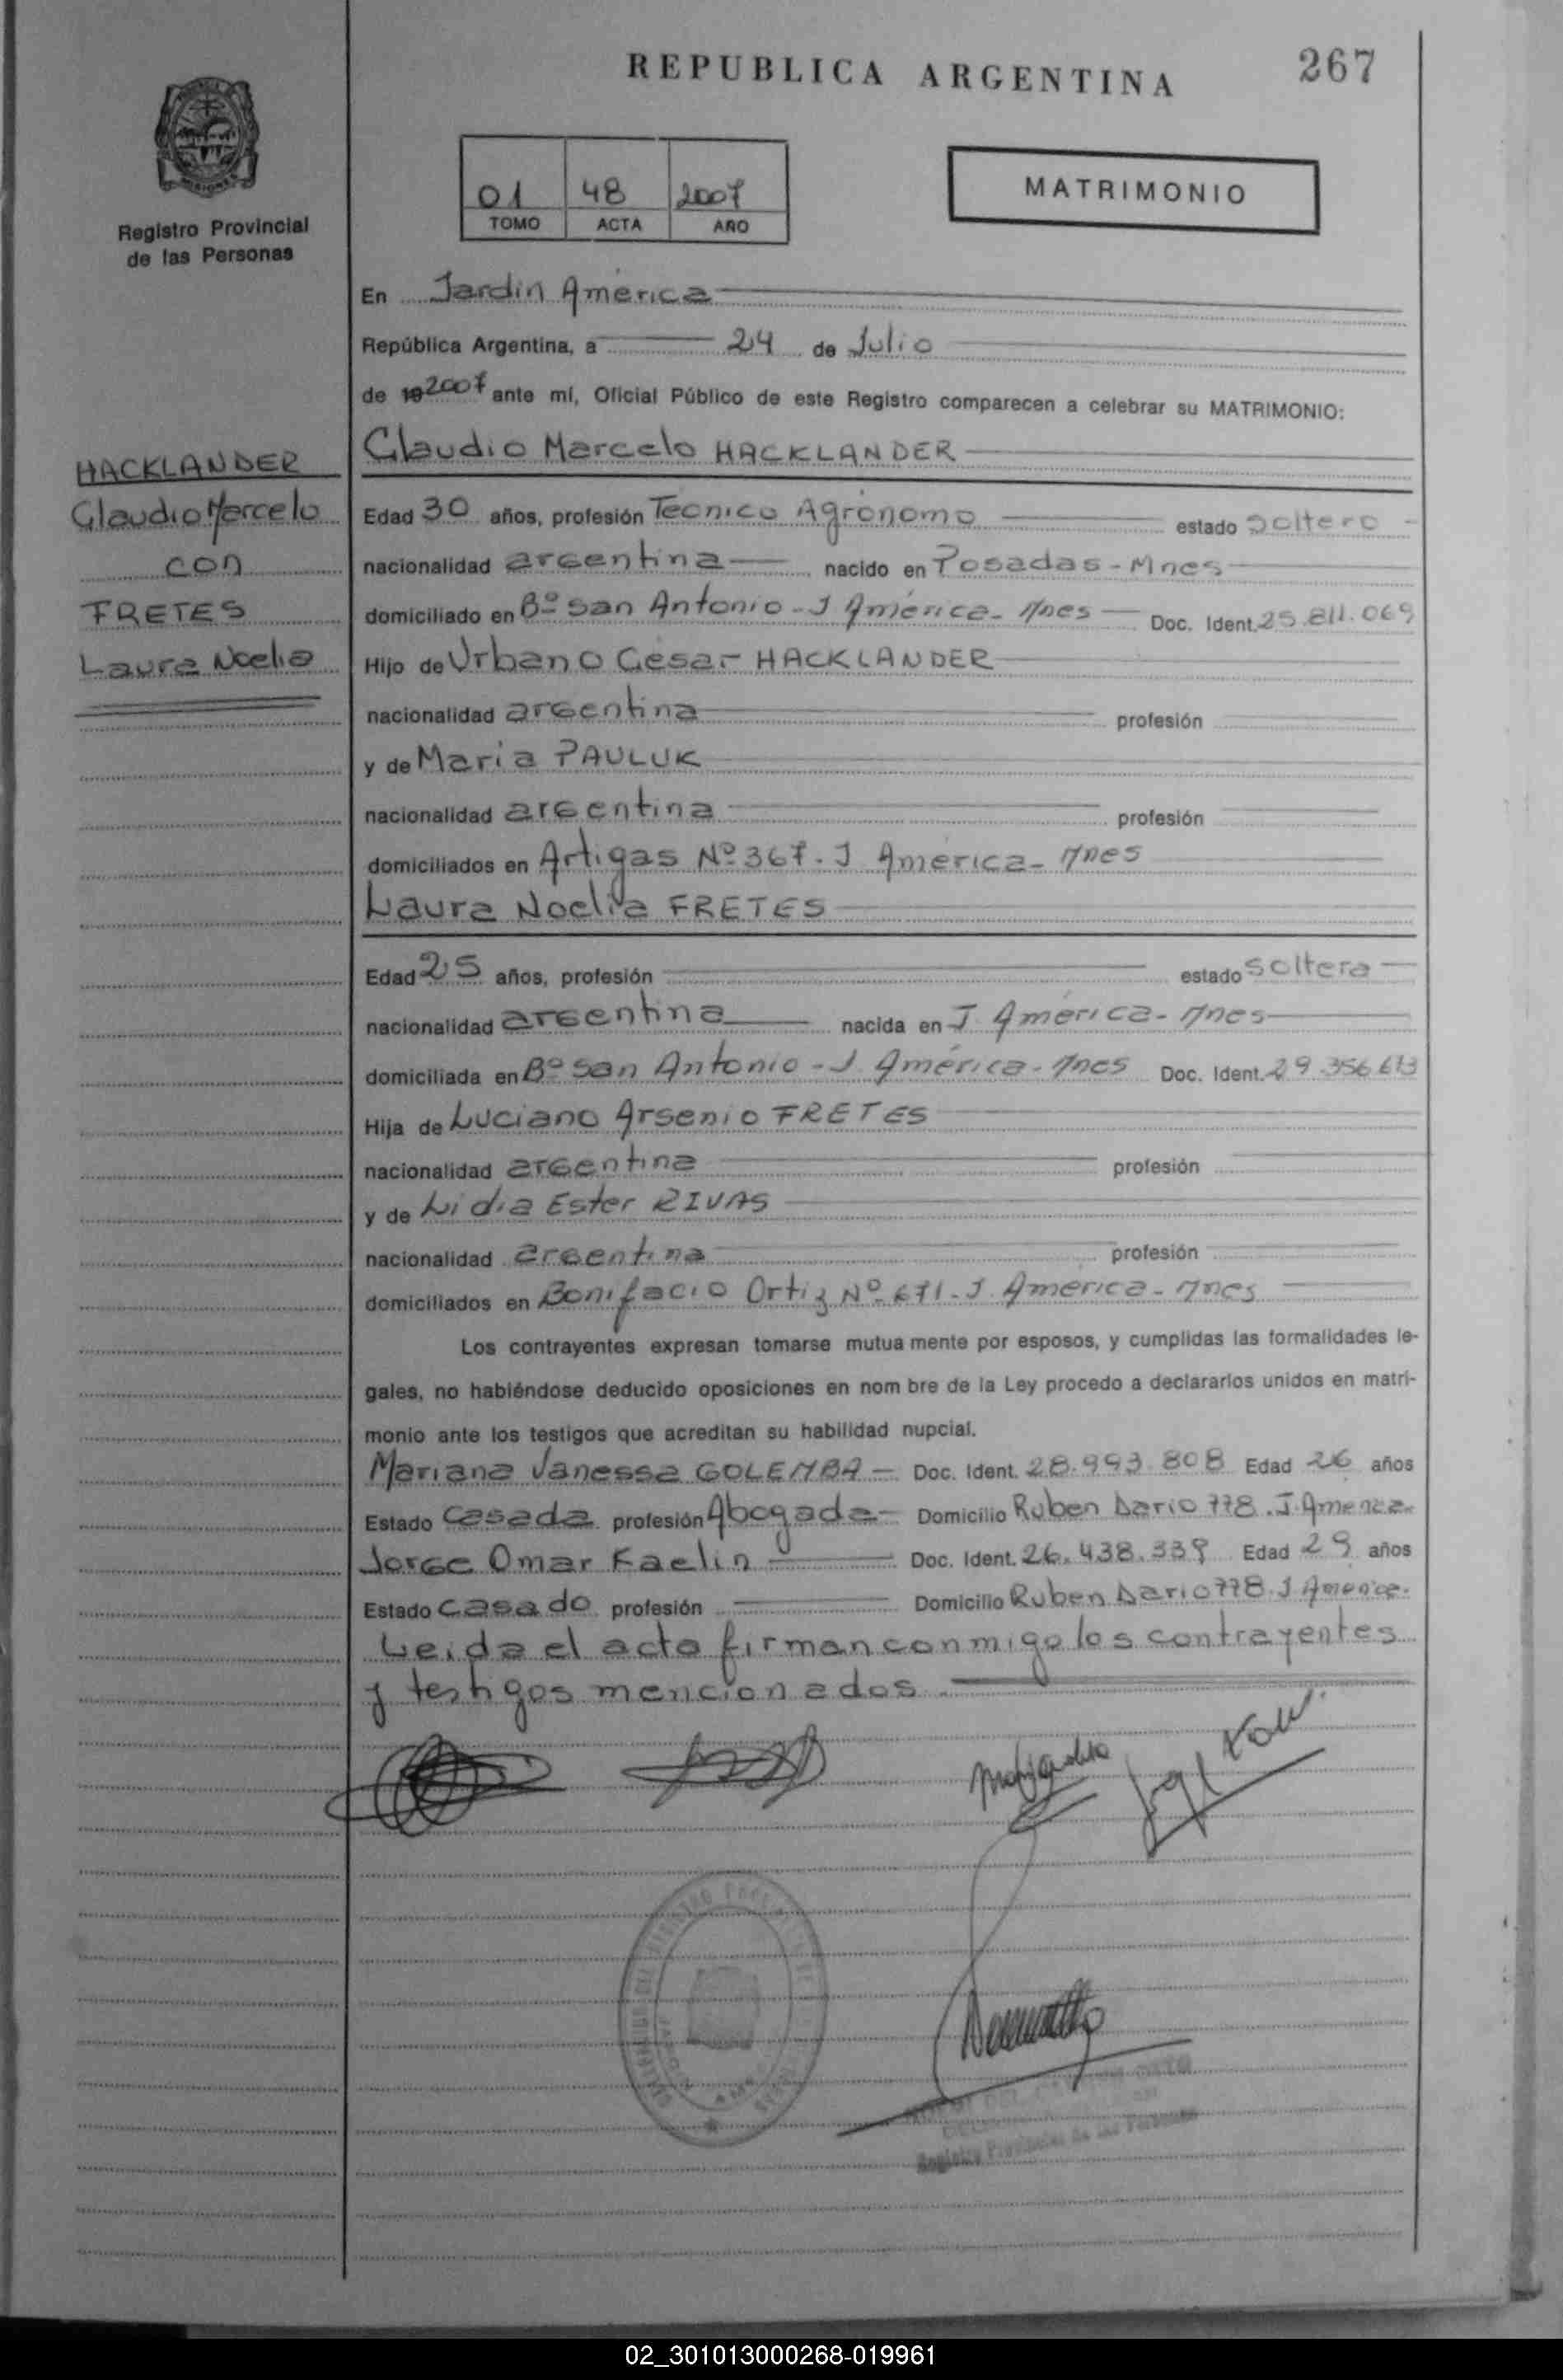 REPUBLICA ARGENTINA
267
Registro Provincial
de las Personas
01 48 2007
TOMO ACTA AÑO
MATRIMONIO
En Jardin América
República Argentina, a 24 de Julio
de 19 2007 ante mí, Oficial Público de este Registro comparecen a celebrar su MATRIMONIO:
HACKLANDER
Claudio Marcelo
con
FRETES
Laura Noelia
Claudio Marcelo HACKLANDER
Edad 30 años, profesión Tecnico Agrónomo estado Soltero
nacionalidad argentina nacido en Posadas - Mnes
domiciliado en Bº San Antonio - J América - Mnes Doc. Ident. 25.811.069
Hijo de Urbano Cesar HACKLANDER
nacionalidad argentina profesión
y de Maria PAULUK
nacionalidad argentina profesión
domiciliados en Artigas Nº 367. J América - Mnes
Laura Noelia FRETES
Edad 25 años, profesión estado Soltera
nacionalidad argentina nacida en J. América - Mnes
domiciliada en Bº San Antonio - J. América - Mnes Doc. Ident. 29.356.673
Hija de Luciano Arsenio FRETES
nacionalidad argentina profesión
y de Lidia Ester RIVAS
nacionalidad argentina profesión
domiciliados en Bonifacio Ortiz Nº 671 - J. América - Mnes
Los contrayentes expresan tomarse mutua mente por esposos, y cumplidas las formalidades le-
gales, no habiéndose deducido oposiciones en nom bre de la Ley procedo a declararlos unidos en matri-
monio ante los testigos que acreditan su habilidad nupcial.
Mariana Vanessa GOLEMBA - Doc. Ident. 28.993.808 Edad 26 años
Estado Casada profesión Abogada - Domicilio Ruben Dario 778. J. America
Jorge Omar Kaelin Doc. Ident. 26.438.339 Edad 29 años
Estado Casado profesión Domicilio Ruben Dario 778. J America.
Leida el acta firman conmigo los contrayentes
y testigos mencionados
Registro Provincial de las Personas
02_301013000268-019961